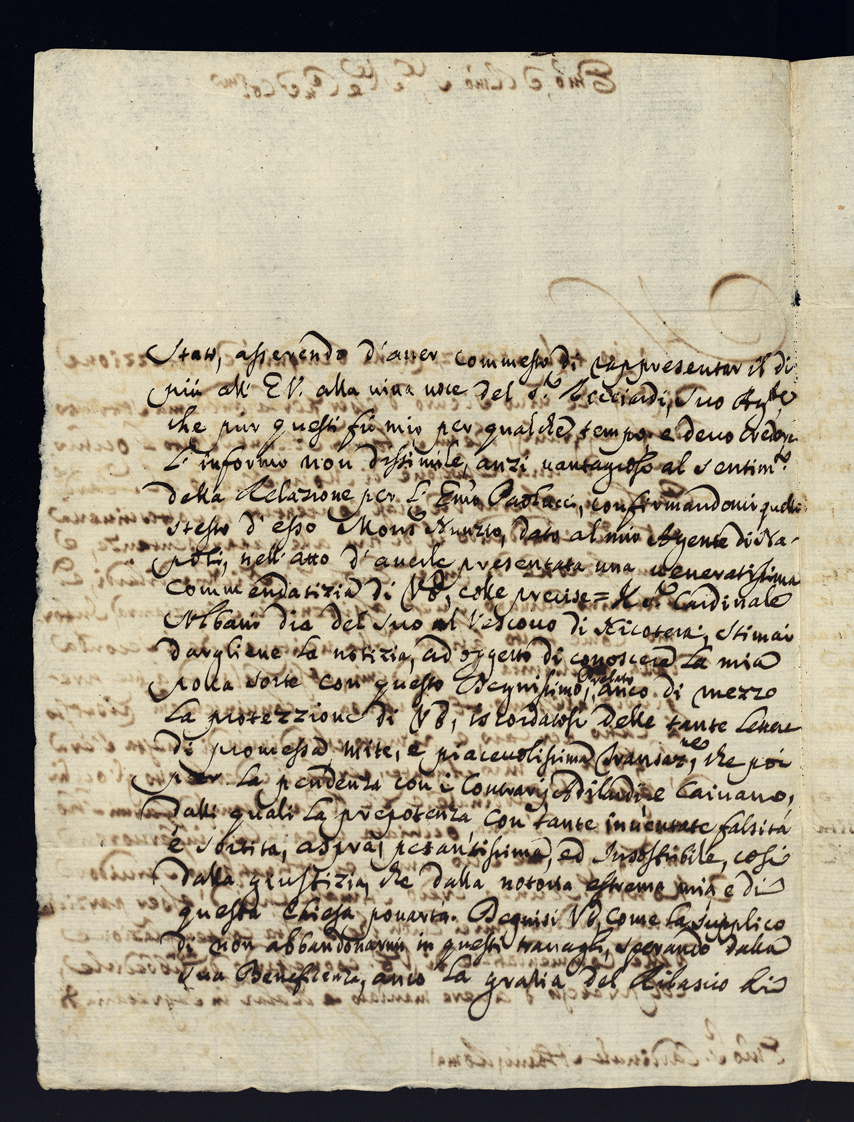 Stato, asserendo d'aver commesso di rappresentar il di
più all' EV. alla viva voce del Sr. Ricciardi, suo
che pur questi fù mio per qualche tempo, e devo creder
L' informo non dissimile, anzi vantagioso al sentimto
della Relazione per L' Emo Paolucci, confirmandomi quell
stesso d' esso Monsr Nunzio, dato al mio Agente di Na-
poli, nell' atto d' averle presentata una veneratissima
Commendatizia di VE, colle precise = Il Sr Cardinale
Albani dia del suo al Vescovo di Nicotera, stimai
dargliene la notizia, ad oggetto di conoscere la mia
poca sorte con questo Degnissimo Prelato, anco di mezzo
la protezzione di VE, scordatosi delle tante lettere
di promessa, mite, e piacevolissima che poi
per la pendenza con i Contrarj Adiludi, e Caivano,
dalli quali la prepotenza con tante inventate falsità
è sortita, aspra, pesantissima, ed insoffribile, così
dalla giustizia, che dalla notoria estrema mia e di
questa Chiesa povertà. Degnisi VE, come la supplico
di non abbandonarmi in questi travagli, sperando dalla
sua Beneficenza, anco la grazia del Ribascio di